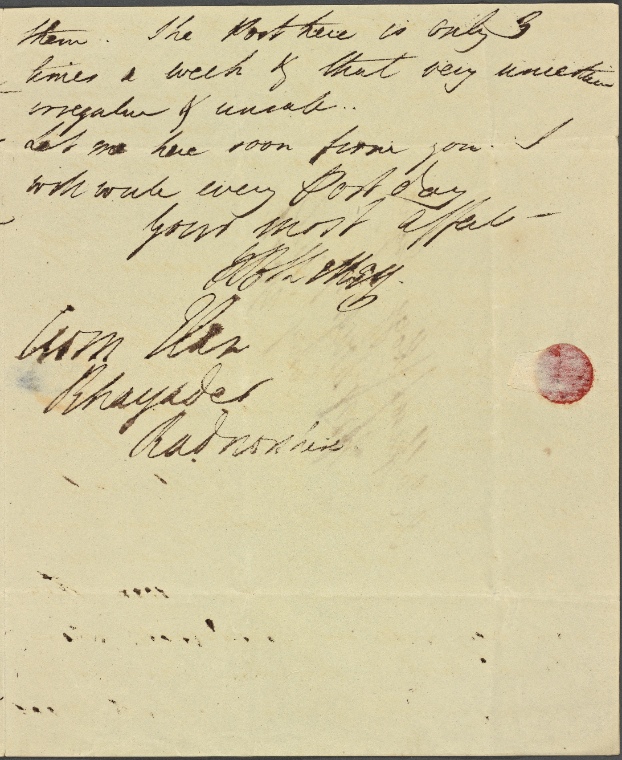 them. The Post here is only 3
times a week & that very uncertain
irregular & unsafe..
Let me hear soon from you. I
will write every Post day
Yours most affect—
PBShelley.
Cwm Elan
Rhayader
Radnorshire